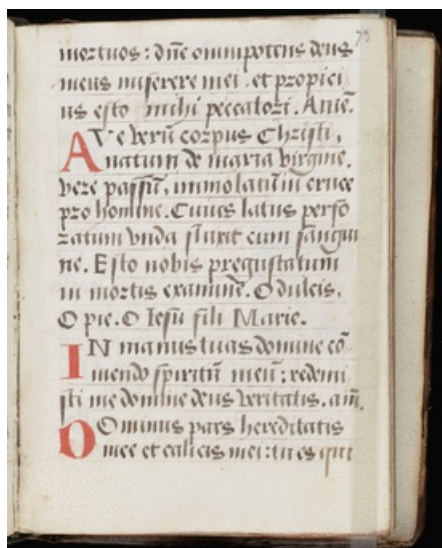 79
mortuos : dñe omnipotens deus
meus miserere mei . et propici
us esto michi peccatori . Amē.
AVe verū corpus Christi ,
natum de maria virgine ,
vere passū , immolatū in cruce
pro homine . Cuius latus perfo
ratum vnda fluxit cum sangui
ne . Esto nobis pregustatum
in mortis examine . O dulcis ,
O pie . O Iesu fili Marie .
IN manus tuas domine cō
mendo spiritū meū ; redemi
sti me domine deus veritatis . am̄.
DOminus pars hereditatis
mee et calicis mei : tu es qui